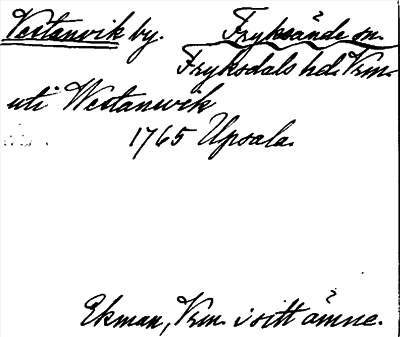 Vestanvik by. Fryksände sn.
Fryksdals hd. Vrm.
uti Westanwek
1765 Upsala.
Ekman, Vrm. i sitt ämne.